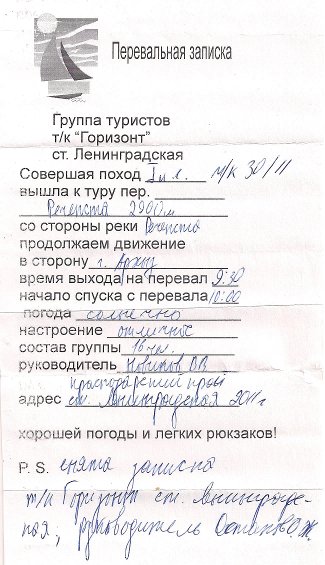 Перевальная записка
Группа туристов
т/к "Горизонт"
ст. Ленинградская
Совершая поход I у с. м/к 30/11
вышла к туру пер.
Речепста 2900м
со стороны реки Речепста
продолжаем движение
в сторону г. Архыз
время выхода на перевал 9:30
начало спуска с перевала 10:00
погода солнечно
настроение отличное
состав группы 16 чел.
руководитель Новиков ВВ
Краснодарский край
адрес ст. Ленинградская 2011г
хорошей погоды и легких рюкзаков!
P. S. снята записка
т/к Горизонт ст. Ленинградс-
кая; руководитель